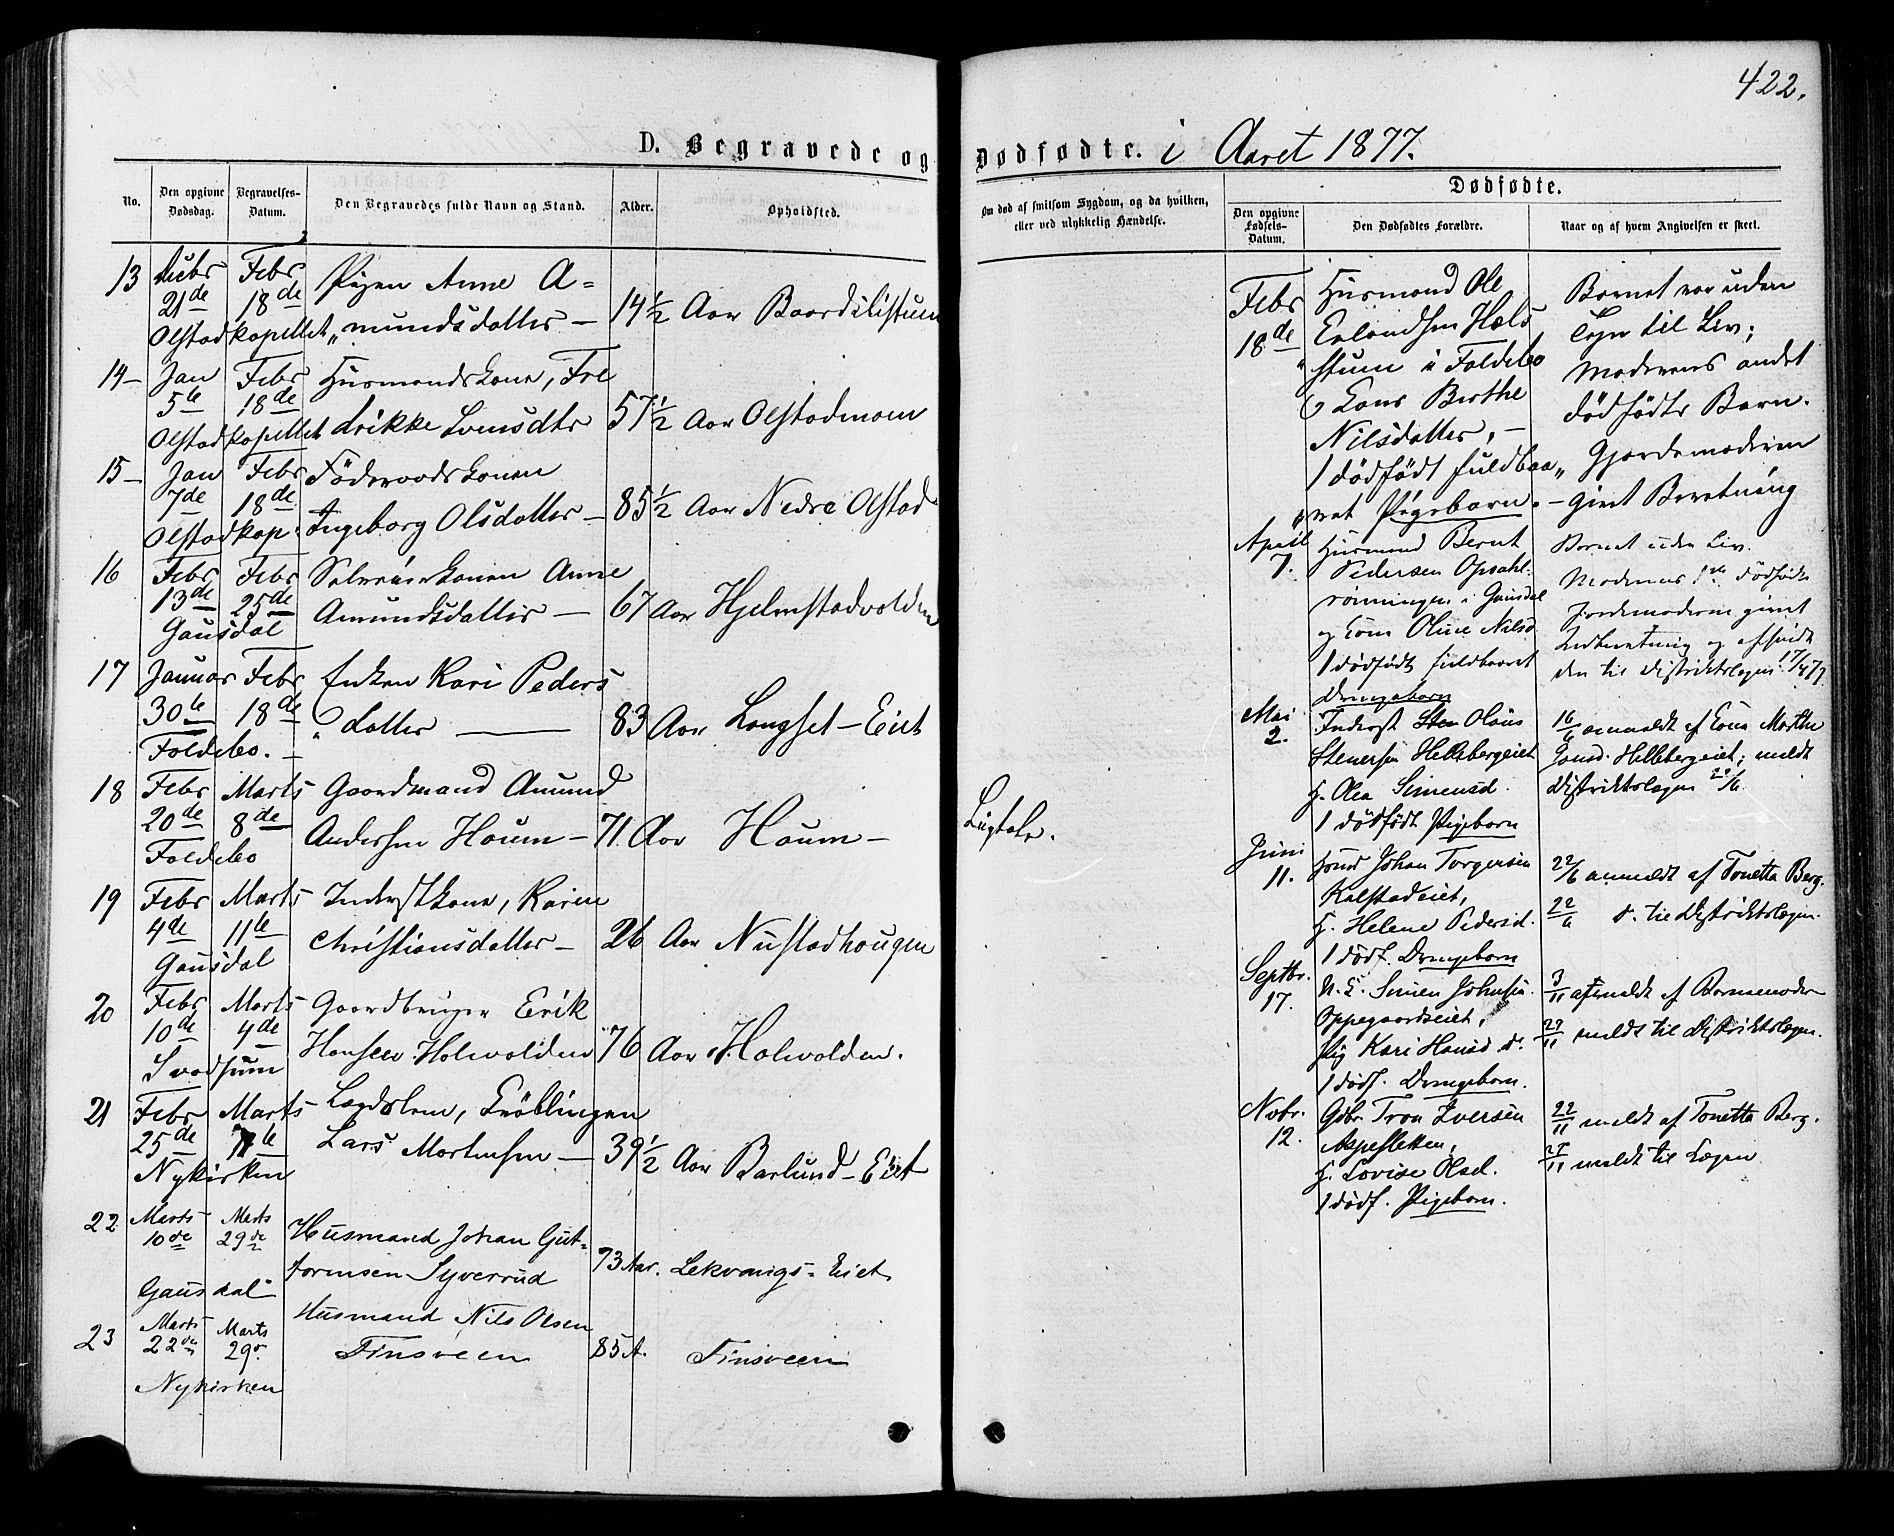 422.
D. Begravede og Dødfødte. i Aaret 1877.
No.
Den opgivne Dødsdag.
Begravelses-Datum.
Den Begravedes fulde Navn og Stand.
Alder.
Opholdsted.
Om død af smitsom Sygdom, og da hvilken,
eller ved ulykkelig Hændelse.
Dødfødte.
Den opgivne Fødsels-Datum.
Den Dødfødtes Forældre.
Naar og af hvem Angivelsen er skeet.
13 Febr Pigen Anne A=
21de 18de mundsdatter — 14½ Aar Baardslistuen
Olstadkapellet
14 — Jan Febr Husmandskone, Fre
5te 18de drikke Svensdtr 57½ Aar Olstadmoen
Olstadkapellet
15 — Jan Febr Föderaadskonen
7de 18de Ingeborg Olsdatter — 85½ Aar Nedre Olstad
Olstadkap.
16 Febr Febr Anne
13de 25de Amundsdatter — 67 Aar Hjelmstadvolden
Gausdal
17 Januar Febr Enken Kari Peders
30te 18de datter — 83 Aar Langset — Eiet
Foldebo. —
18 Febr Marts Gaardmand Amund
20de 8de Andersen Houm — 71. Aar Houm — Ligtale.
Foldebo
19 Febr Marts Inderstkone, Karen
4de 11te Christiansdatter — 26 Aar Nustadhougen
Gausdal
20 Febr Marts Gaardbruger Erik
10de 4de Hansen Holvolden 76 Aar Holvolden.
Svadsum
21 Febr Marts Lægdslem, Kröblingen
25de Lars Mortensen — 39½ Aar Barlund — Eiet
Nykirken
22 Marts Marts Husmand Johan Gut=
10de 29de tormsen Syverud 73 Aar. Lekvangs = Eiet.
Gausdal
23 Marts Marts Husmand Nils Olsen
22de 29de Finsveen 85 A. Finsveen
Nykirken
Febr 18de
Husmand Ole
Erlandsen Hols
stuen i Foldebo
Kone Berthe
Nilsdatter, —
1 dödfödt fuldbaa
ret Pigebarn. —
Barnet var uden
Tegn til Liv;
Moderens andet
dödfödte Barn.
Gjordemoderen
givet Beretning
April 7.
Husmand Bernt
Pedersen Opsahl=
rönningen i Gausdal
og Kone Oline Nilsd.
1 dödfödt fuldbaaret
Drengebarn
Barnet uden Liv.
Moderens 1ste dödfödte
Jordemoderen givet
Indberetning og afsendt
den til Distriktslægen 17/4 77.
Mai 2.
Inderst Olaus
Stenersen Hellebergeiet
H. Olea Simensd.
1 dödfödt Pigebarn
16/6 anmeldt af Kone Marthe
Hellebergeiet; meldt
Distriktslægen 22/6
Juni 11.
Husmd Johan Torgersen
Kalstadeiet,
H. Helene Pedersd.
1 dödf. Drengebarn
22/6 anmeldt af Tonetta Berg.
22/6 d. til Distriktslægen.
Septbr. 17.
U. K. Simen Johnsen
Oppegaardseiet,
Pig Kari Hansd. d.
1 dödf. Drengebarn.
3/11 anmeldt af Barnemoder
29/11 meldt til Distriktslægen.
Novbr. 12.
Gdbr. Tron Iversen
Aspesletten,
H. Lovise Olsd.
1 dödf. Pigebarn.
22/11 meldt af Tonetta Berg.
meldt til Lægen